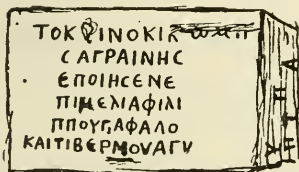 ΤΟΚΡΙΝΟΚΙΑ
CΑΓΡΑΙΝΗC
ΕΠΟΙΗCΕΝΕ
ΠΙΜΕΛΙΑΦΙΛΙ
ΠΠΟΥΓΑΦΑΛΟ
ΚΑΙΤΙΒΕΡΜΟΥΑΓΥ